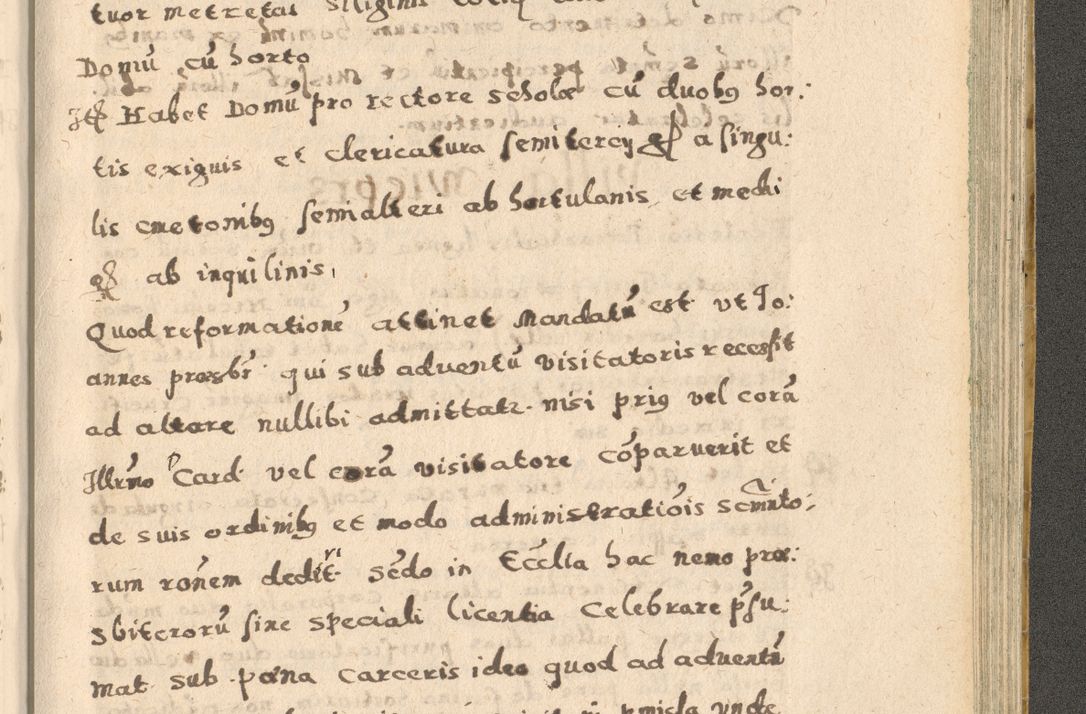 tuor metretas siliginis
Domū cū horto
Itē Habet Domū pro rectore scholæ cū duobꝯ hor:
tis exiguis et clericatura semitercij gß a singu:
lis cmetonibꝯ semialteri ab hortulanis et medii
gß ab inquilinis,
Quod reformationē attinet Mandatū est ut Jo:
annes præsbr̄ qui sub adventū visitatoris recessit
ad altare nullibi admittatr nisi priꝯ vel corā
Illrmo Card vel corā visitatore cōparuerit et
de suis ordinibꝯ et modo administratiōis scm̄nto:
rum rōnem dedirit Sēdo in Ecclia hac nemo præ:
sbiterorū sine speciali licentia celebrare p̄su:
mat sub pœna carceris ideo quod ad adventū